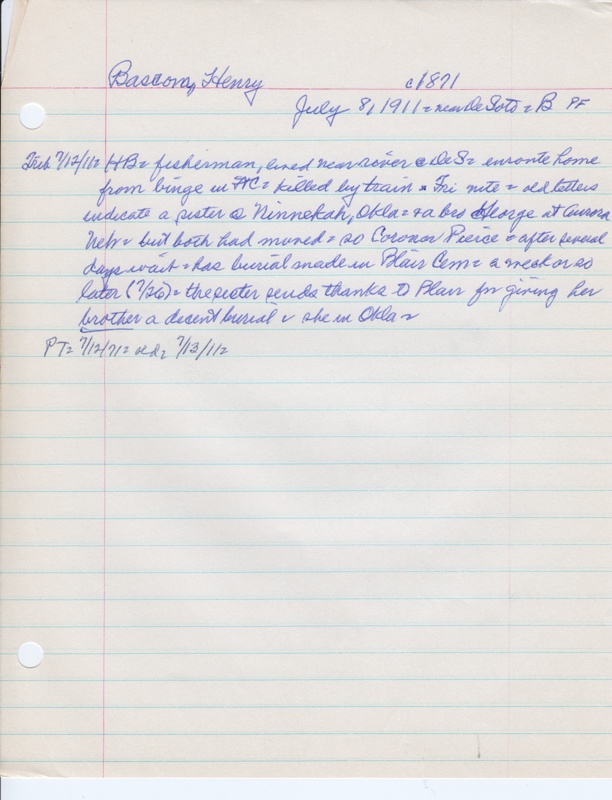 Bascom, Henry c1871
July 8, 1911 = near DeSoto = B PF
Trib 7/12/11= HB= fisherman, lived near river @ DeS= enroute home
from binge in FC= killed by train = Fri nite = old letters
indicate a sister @ Ninnekah, Okla= + a bro George at Aurora
Neb= but both had moved= so Coroner Pierce = after several
days wait = has burial made in Blair Cem= a week or so
later (7/26)= the sister sends thanks to Blair for giving her
brother a decent burial = she in Okla=
PT= 7/12/71= 7/13/11=